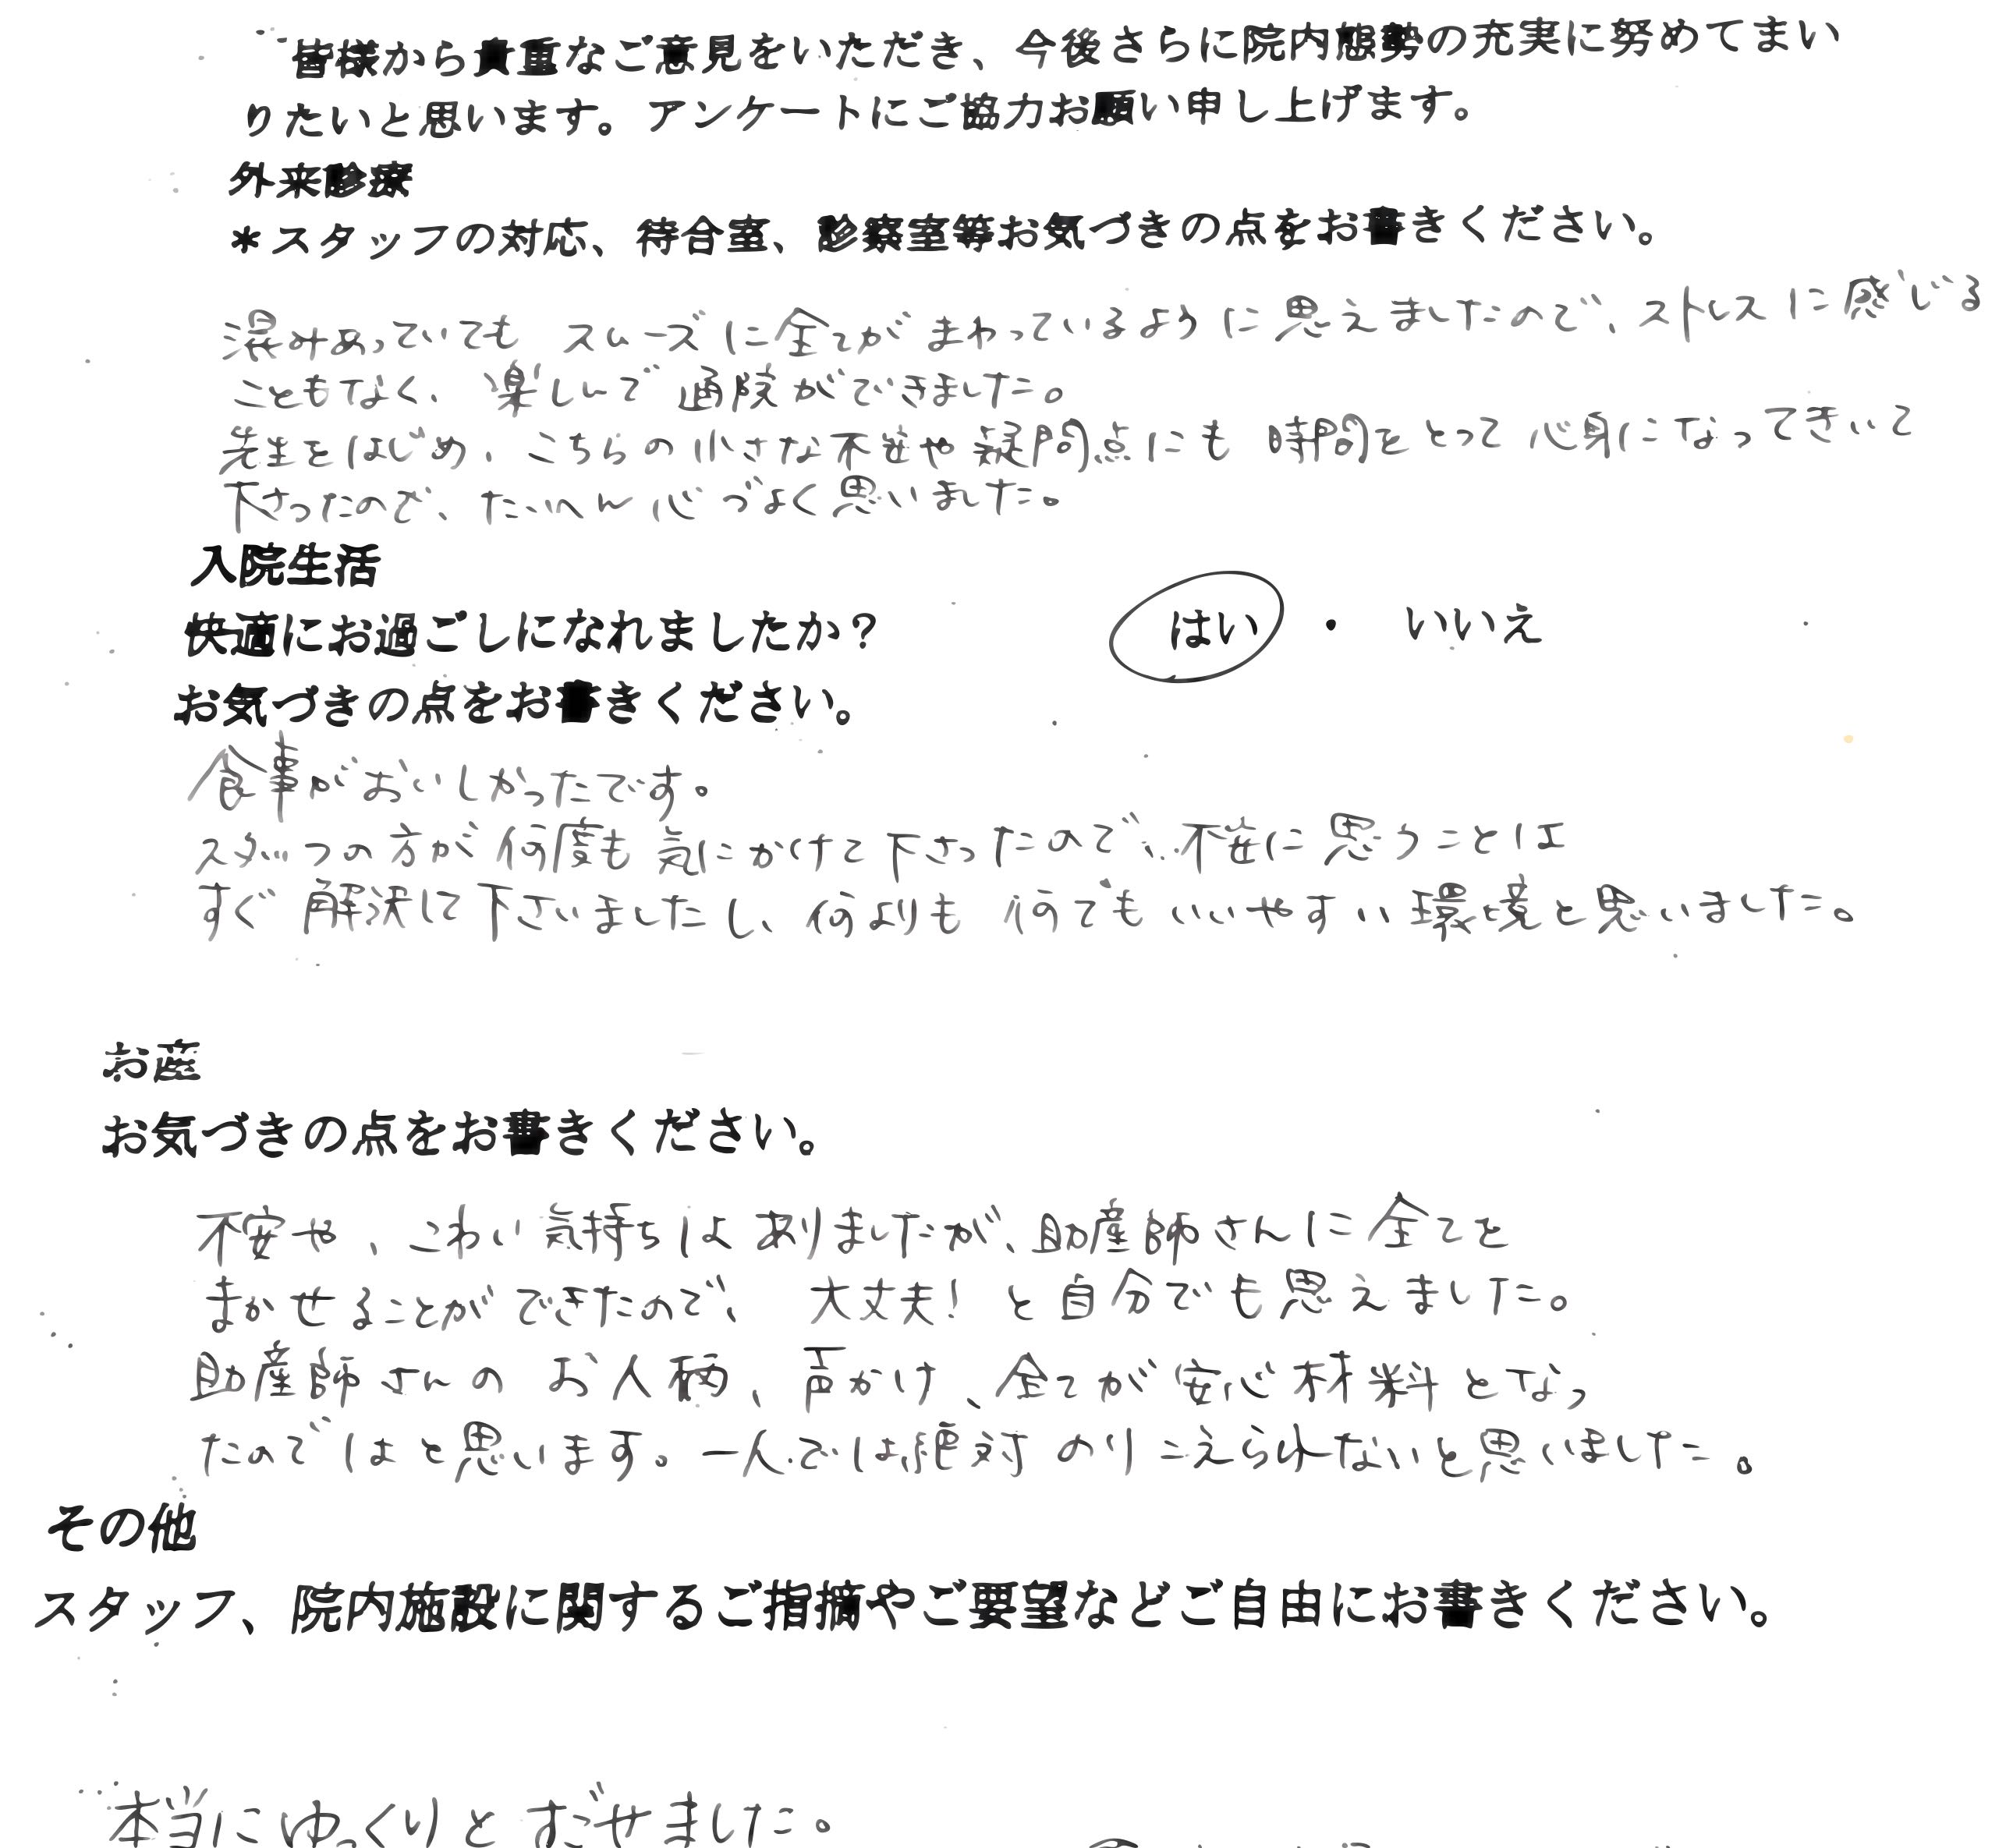 皆様から貴重なご意見をいただき、今後さらに院内態勢の充実に努めてまい
りたいと思います。アンケートにご協力お願い申し上げます。
外来診療
*スタッフの対応、待合室、診察室等お気づきの点をお書きください。
混みあっていても スムーズに全てがまわっているように思えましたので、ストレスに感じる
こともなく、楽しんで通院ができました。
先生をはじめ、こちらの小さな不安や疑問点にも 時間をとって心身になってきいて
下さったので、たいへん心づよく思いました。
入院生活
快適にお過ごしになれましたか? はい ・ いいえ
お気づきの点をお書きください。
食事がおいしかったです。
スタッフの方が何度も気にかけて下さったので、不安に思うことは
すぐ解決して下さいましたし、何よりも 何でもいいやすい環境と思いました。
お産
お気づきの点をお書きください。
不安や、こわい気持ちはありましたが、助産師さんに全てを
まかせることができたので、大丈夫!と自分でも思えました。
助産師さんの お人柄、声かけ、全てが安心材料となっ
たのではと思います。一人では絶対のりこえられないと思いました。
その他
スタッフ、院内施設に関するご指摘やご要望などご自由にお書きください。
本当にゆっくりとすごせました。